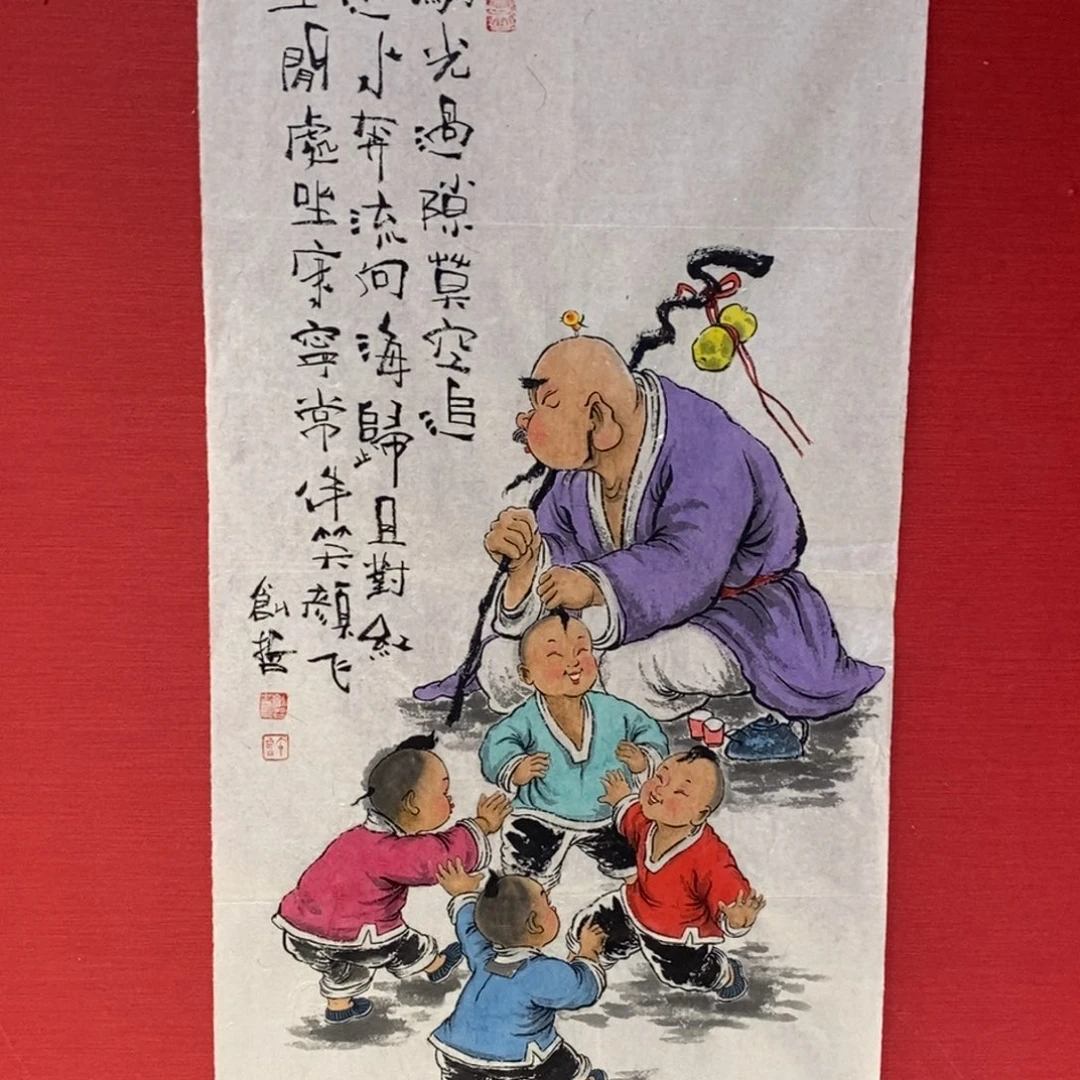 光過隙莫空追
水奔流向海歸且對紅
閒處坐家寧常伴笑顏飞
創